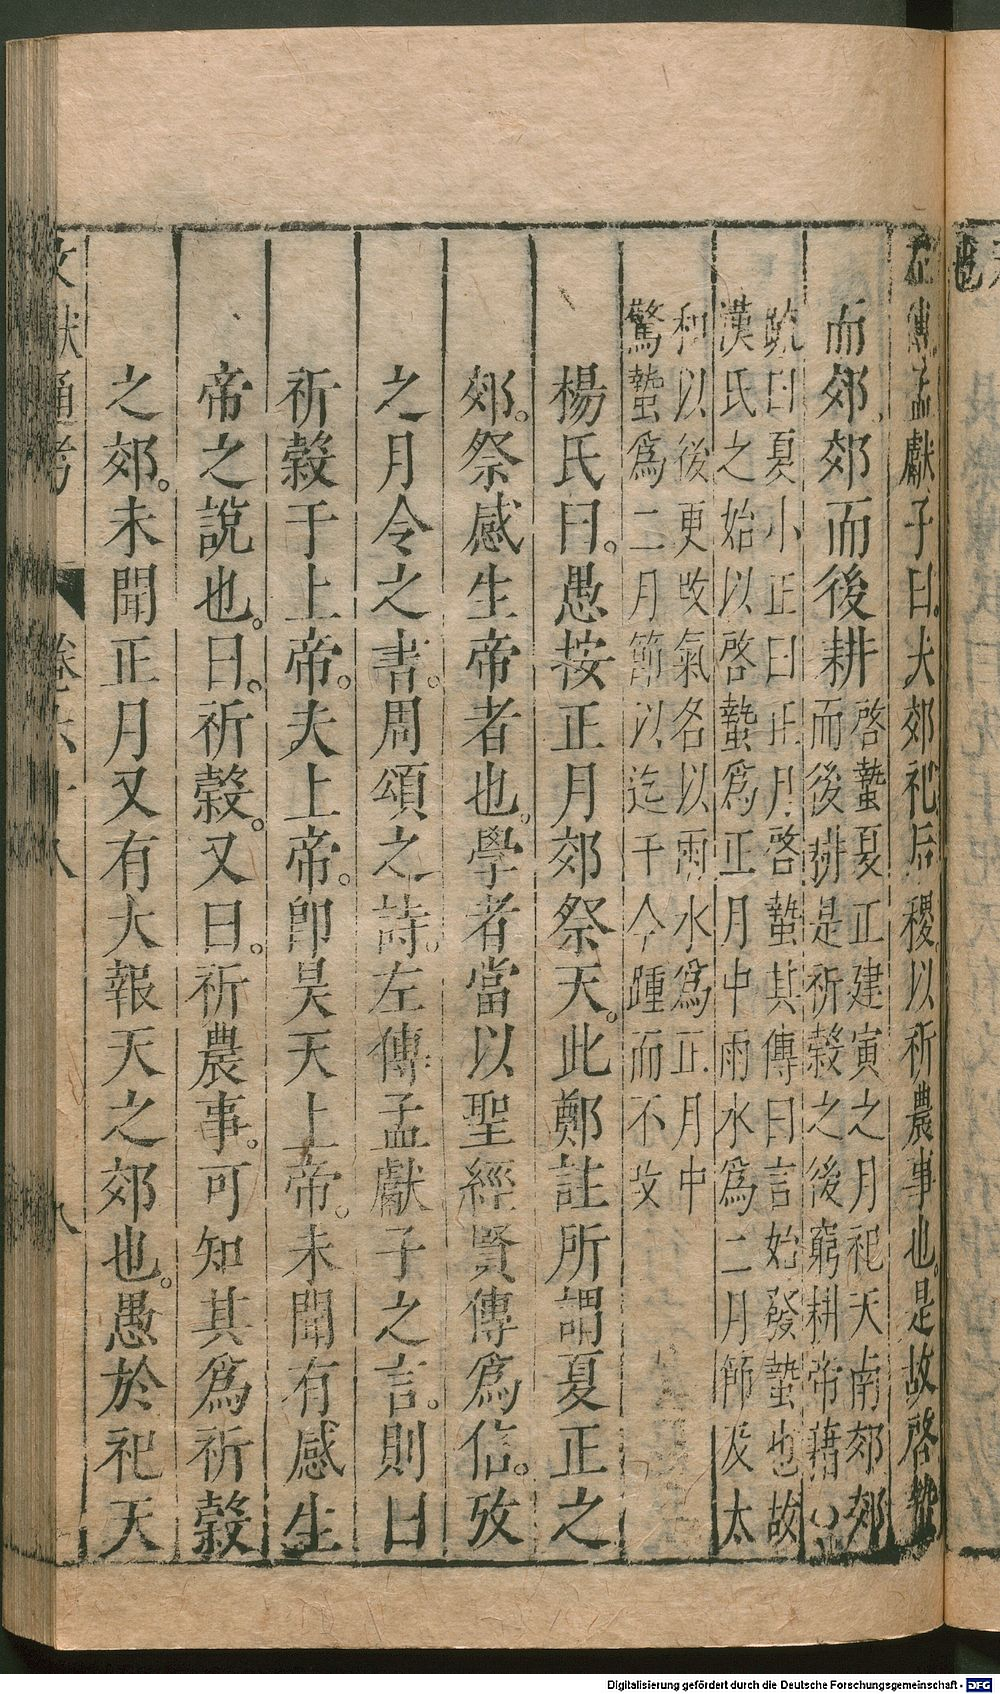 左傳孟獻子曰夫郊祀后稷以祈農事也是故啓蟄
而郊郊而後耕啓蟄夏正建寅之月祀天南郊郊
而後耕是祈穀之後躬耕帝藉
疏曰夏小正曰正月啓蟄其傳曰言始發蟄也故
漢氏之始以啓蟄爲正月中雨水爲二月節及太
初以後更改氣名以雨水爲正月中
驚蟄爲二月節以迄于今踵而不改
楊氏曰。愚按正月郊祭天。此鄭註所謂夏正之
郊。祭感生帝者也。學者當以聖經賢傳爲信。攷
之月令之書。周頌之詩。左傳孟獻子之言。則曰
祈穀于上帝。夫上帝。即昊天上帝。未聞有感生
帝之說也。曰。祈穀。又曰。祈農事。可知其爲祈穀
之郊。未聞正月又有大報天之郊也。愚於祀天
文獻通考 卷六十八 九
Digitalisierung gefördert durch die Deutsche Forschungsgemeinschaft - DFG